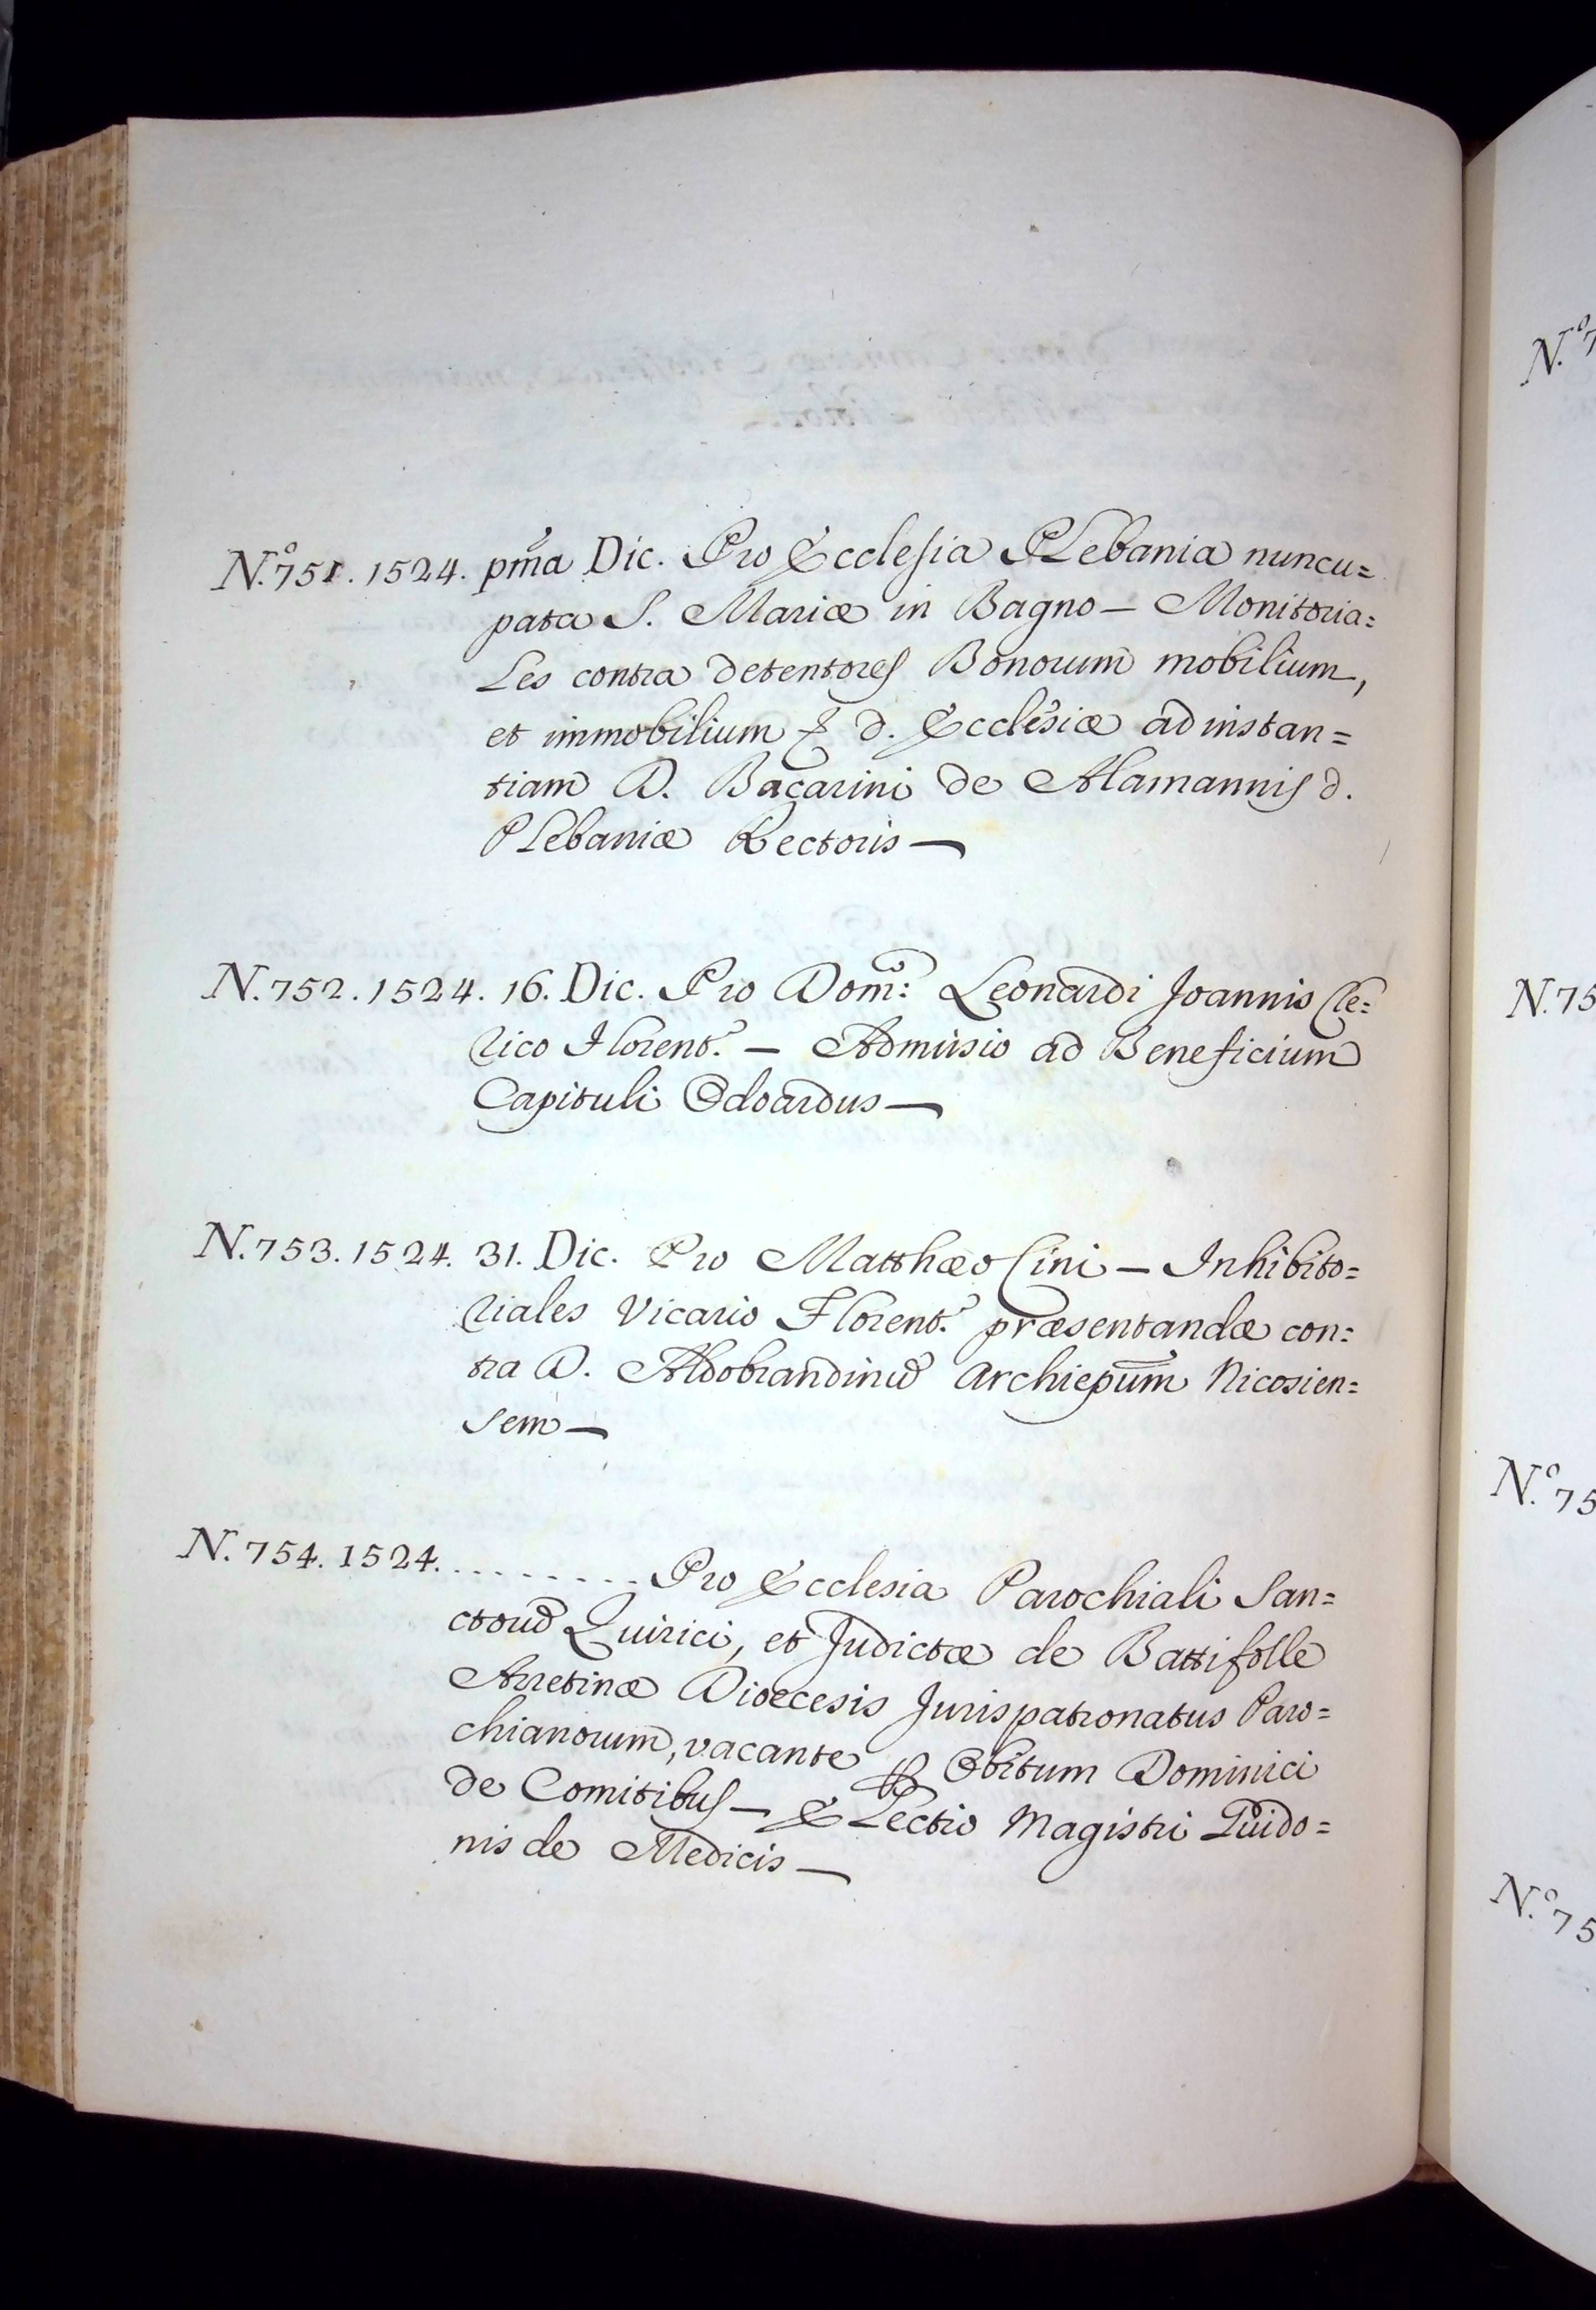 N.º 751. 1524. pm̃a Dic. Pro Ecclesia Plebania nuncu=
pata S. Mariæ in Bagno — Monitoria=
les contra detentores Bonorum mobilium,
et immobilium d. Ecclesiæ ad instan=
tiam D. Bacarini de Alamannis d.
Plebaniæ Rectoris —
N. 752. 1524. 16. Dic. Pro Dom̃: Leonardi Joannis Cle=
rico Florent. — Admissio ad Beneficium
Capituli Odoardus —
N. 753. 1524. 31. Dic. Pro Matthæo Cini — Inhibito=
riales Vicario Florent. præsentandæ con=
tra D. Aldobrandinũ Archiepũm Nicosien=
sem —
N. 754. 1524. . . . . . . . . . Pro Ecclesia Parochiali San=
ctorũ Quirici, et Judictæ de Battifolle
Arretinæ Dioecesis Jurispatronatus Paro=
chianorum, vacante ꝑ Obitum Dominici
de Comitibus — Electio Magistri Guido=
nis de Medicis —
N.º 7
N. 75
N.º 75
N.º 75